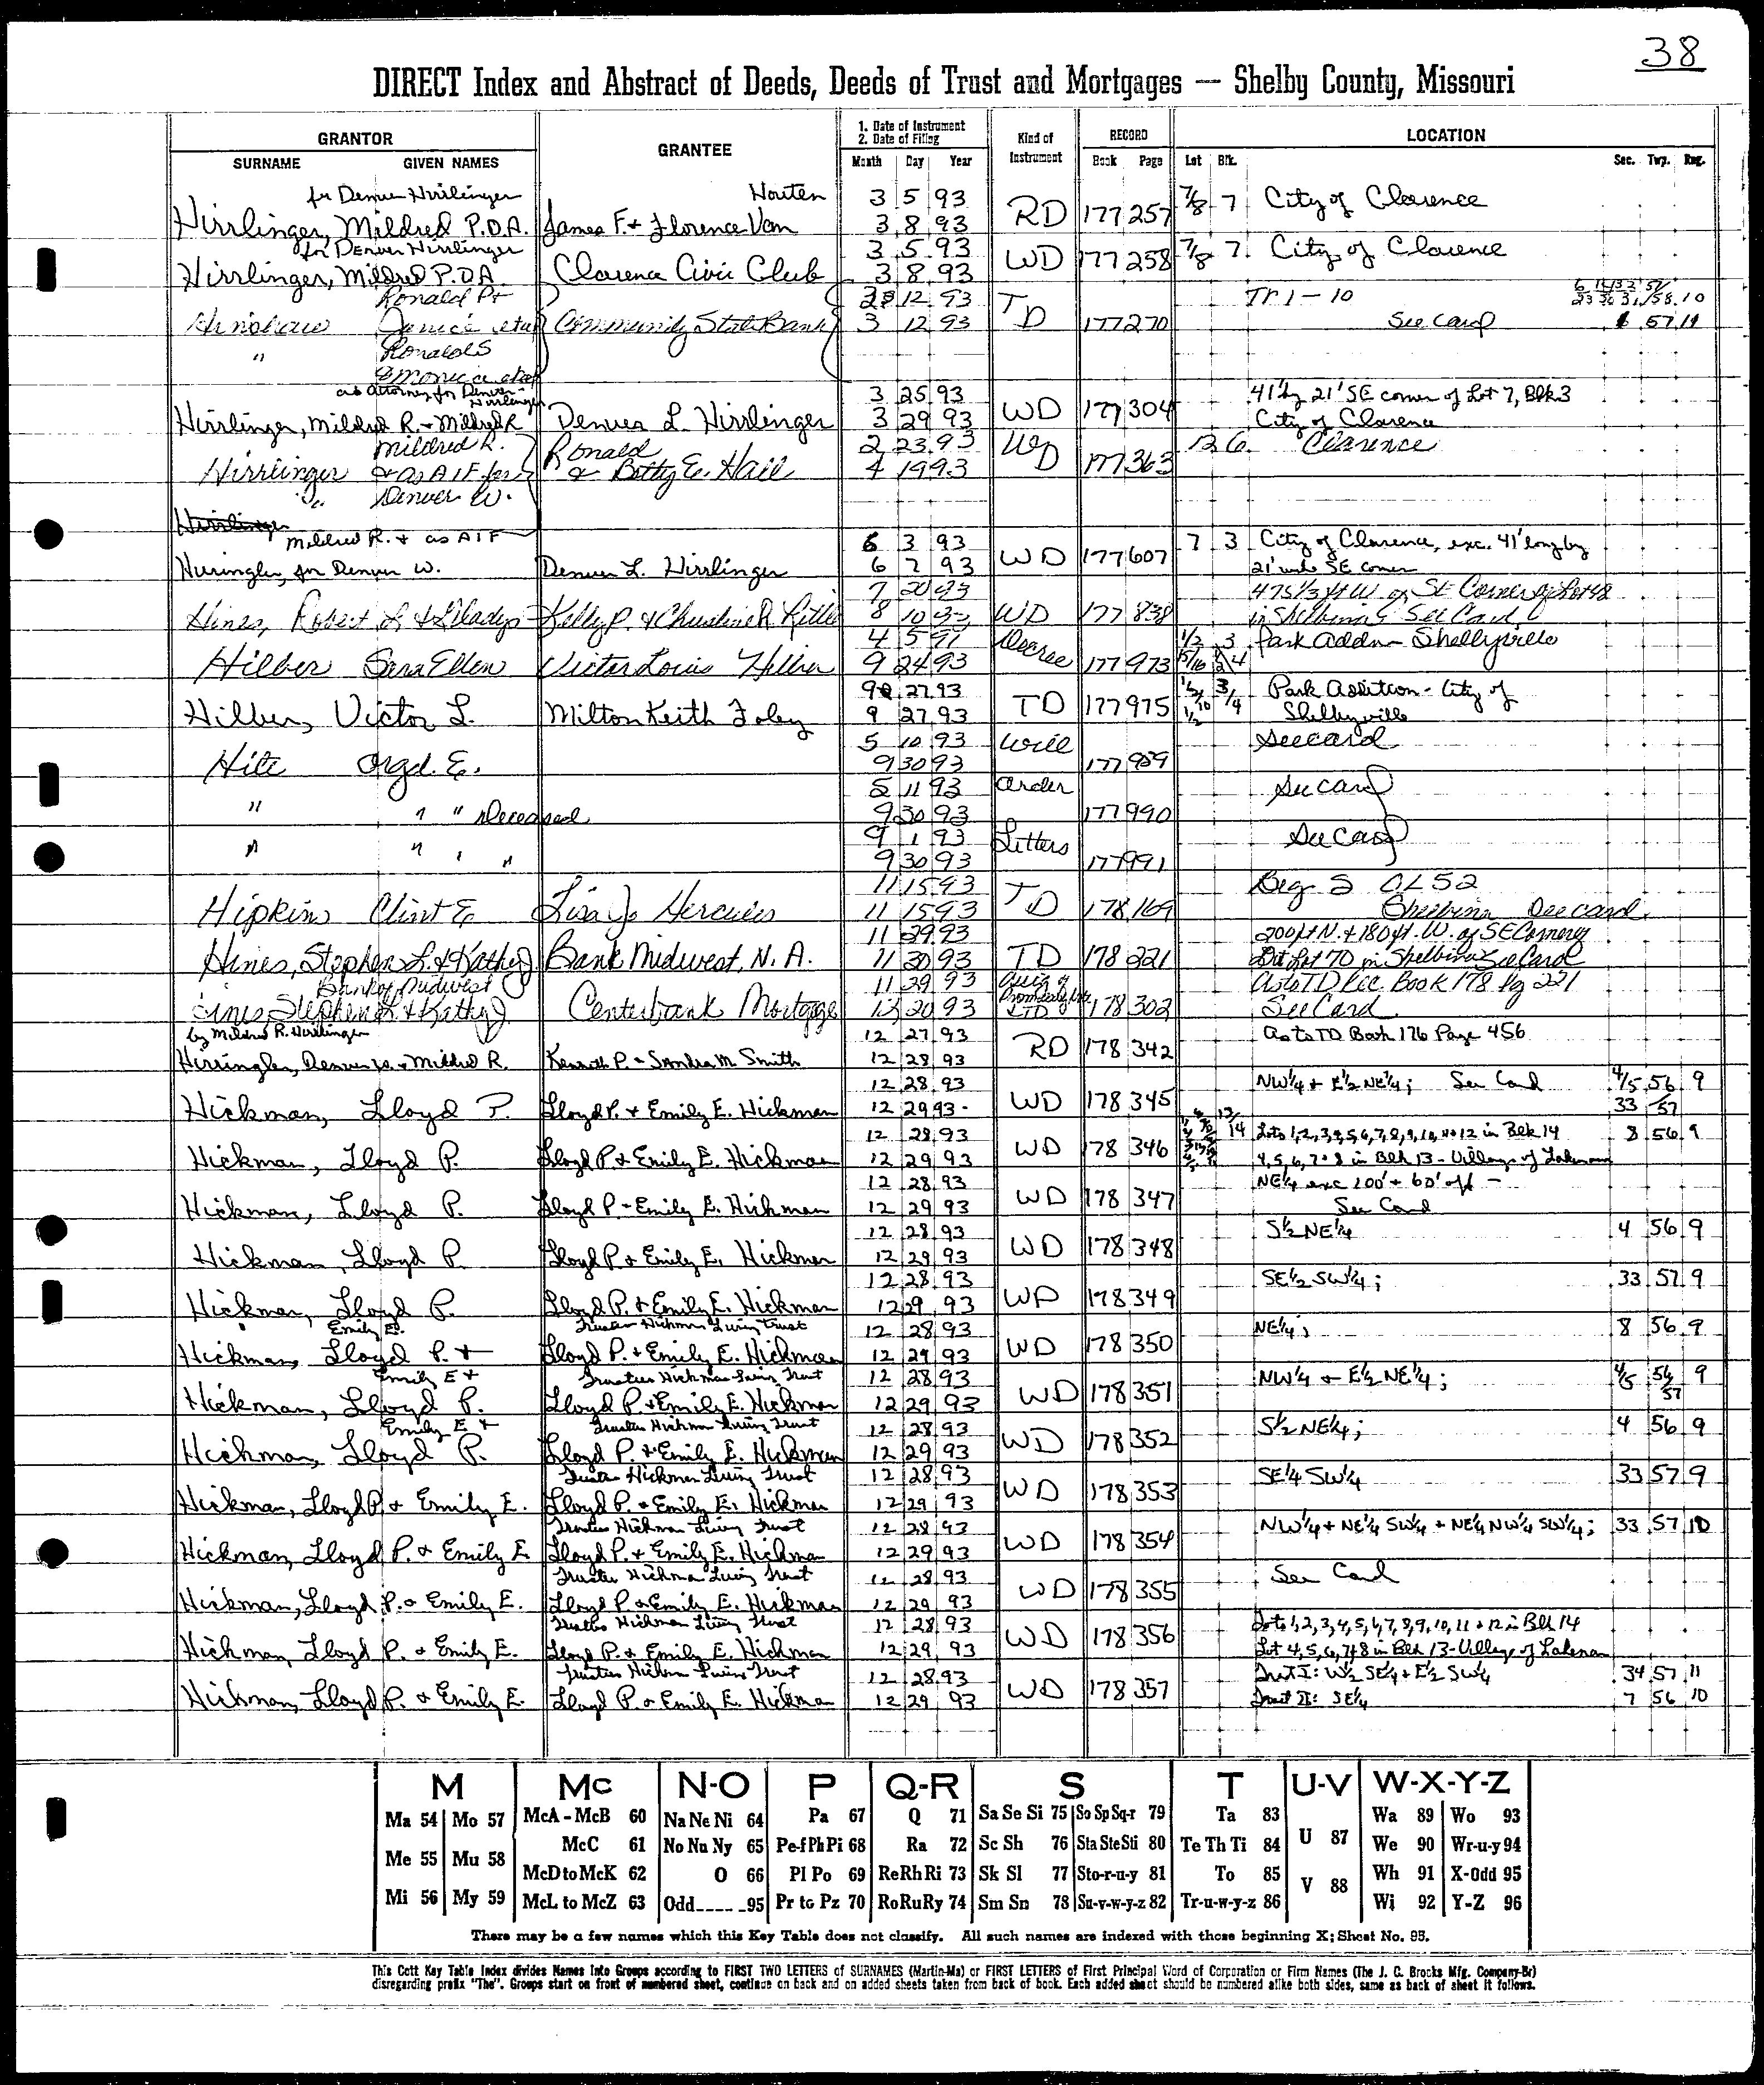 38
DIRECT Index and Abstract of Deeds, Deeds of Trust and Mortgages — Shelby County, Missouri
GRANTOR
SURNAME GIVEN NAMES
GRANTEE
1. Date of Instrument
2. Date of Filing
Month Day Year
Kind of Instrument
RECORD
Book Page
LOCATION
Lot Blk. Sec. Twp. Rng.
for Denver Hirrlinger Houten 3 5 93
Hirrlinger, Mildred P.O.A. James F. & Florence Van 3 8 93 RD 177 257 7/8 7 City of Clarence
for Denver Hirrlinger 3 5 93
Hirrlinger, Mildred P.O.A. Clarence Civic Club 3 8 93 WD 177 258 7/8 7 City of Clarence
Ronald P & 12 93 Tr 1-10
Henshaw Janice etal Community State Bank 3 12 93 TD 177 270 See Card 6 57 11
" Ronald S
& Monica etal
as Attorney for Denver Hirrlinger 3 25 93 41' by 21' SE corner of Lot 7, Blk 3
Hirrlinger, Mildred R. & Mildred R Denver L. Hirrlinger 3 29 93 WD 177 304 City of Clarence
Mildred R. Ronald 2 23 93
Hirrlinger & as AIF for & Betty E. Hail 4 19 93 WD 177 363 12 6 Clarence
" Denver W.
Hirrlinger
Mildred R. & as AIF 6 3 93 7 3 City of Clarence, exc. 41' long by
Hirringler, for Denver W. Denver L. Hirrlinger 6 7 93 WD 177 607 21' wide SE corner
7 20 93 475 1/3 ft W of SE Corner of Lot 48
Hines, Robert L & Gladys Kelly P. & Christine R. 8 10 93 WD 177 838 in Shelbina See Card
4 5 91 1/2 3 Park Addn - Shelbyville
Hilber Sara Ellen Victor Louis Hilber 9 24 93 Decree 177 973
9 27 93 Park Addition - City of
Hilber, Victor L. Milton Keith Foley 9 27 93 TD 177 975 Shelbyville
5 10 93 Will See card
Hite Orgel E. 9 30 93 177 989
5 11 93 Order See card
" " " Deceased 9 30 93 177 990
9 1 93 Letters See Card
" " " " 9 30 93 177 991
11 15 93 Beg S OL 52
Hipkins Clint E Lisa Jo Hercules 11 15 93 TD 178 169 Shelbina See card
11 29 93 200 ft N. & 180 ft. W. of SE Corner of
Hines, Stephen L. & Kathy J Bank Midwest, N.A. 11 30 93 TD 178 221 Out Lot 70 in Shelbina See Card
Bank of Midwest 11 29 93 As to TD Rec. Book 178 Pg 221
Hines, Stephen L & Kathy J Centerbank Mortgage 12 20 93 178 302 See Card
by Mildred R. Hirrlinger 12 27 93 As to TD Book 176 Page 456
Hirringler, Denver W. & Mildred R. Kenneth P. & Sandra M. Smith 12 28 93 RD 178 342
12 28 93 NW¼ & E½ NE¼; See Card 4/5 56 9
Hickman, Lloyd P. Lloyd P. & Emily E. Hickman 12 29 93 WD 178 345 33 57
12 28 93 14 Lots 1,2,3,4,5,6,7,8,9,10,11 & 12 in Blk 14 8 56 9
Hickman, Lloyd P. Lloyd P & Emily E. Hickman 12 29 93 WD 178 346 4,5,6,7 & 8 in Blk 13 - Village of Lakenan
12 28 93 NE¼ exc 100' & 60' off -
Hickman, Lloyd P. Lloyd P & Emily E. Hickman 12 29 93 WD 178 347 See Card
12 28 93 S½ NE¼ 4 56 9
Hickman, Lloyd P. Lloyd P & Emily E. Hickman 12 29 93 WD 178 348
12 28 93 SE½ SW¼; 33 57 9
Hickman, Lloyd P. Lloyd P. & Emily E. Hickman 12 29 93 WD 178 349
Emily E. Trustees Hickman Living Trust 12 28 93 NE¼; 8 56 9
Hickman, Lloyd P. & Lloyd P. & Emily E. Hickman 12 29 93 WD 178 350
Emily E & Trustees Hickman Living Trust 12 28 93 NW¼ & E½ NE¼; 4/5 56 9
Hickman, Lloyd P. Lloyd P & Emily E. Hickman 12 29 93 WD 178 351 57
Emily E & Trustees Hickman Living Trust 12 28 93 S½ NE¼; 4 56 9
Hickman, Lloyd P. Lloyd P. & Emily E. Hickman 12 29 93 WD 178 352
Trustees Hickman Living Trust 12 28 93 SE¼ SW¼ 33 57 9
Hickman, Lloyd P. & Emily E. Lloyd P. & Emily E. Hickman 12 29 93 WD 178 353
Trustees Hickman Living Trust 12 28 93 NW¼ & NE¼ SW¼ & NE¼ NW¼ SW¼; 33 57 10
Hickman, Lloyd P. & Emily E. Lloyd P. & Emily E. Hickman 12 29 93 WD 178 354
Trustees Hickman Living Trust 12 28 93 See Card
Hickman, Lloyd P. & Emily E. Lloyd P & Emily E. Hickman 12 29 93 WD 178 355
Trustees Hickman Living Trust 12 28 93 Lots 1,2,3,4,5,6,7,8,9,10,11 & 12 in Blk 14
Hickman, Lloyd P. & Emily E. Lloyd P. & Emily E. Hickman 12 29 93 WD 178 356 Lot 4,5,6,7&8 in Blk 13 - Village of Lakenan
Trustees Hickman Living Trust 12 28 93 Tract I: W½ SE¼ & E½ SW¼ 34 57 11
Hickman, Lloyd P. & Emily E. Lloyd P. & Emily E. Hickman 12 29 93 WD 178 357 Tract II: SE¼ 7 56 10
M Mc N-O P Q-R S T U-V W-X-Y-Z
Ma 54 Mo 57 McA - McB 60 Na Ne Ni 64 Pa 67 Q 71 Sa Se Si 75 So Sp Sq-r 79 Ta 83 U 87 Wa 89 Wo 93
Me 55 Mu 58 McC 61 No Nu Ny 65 Pe-f Ph Pi 68 Ra 72 Sc Sh 76 Sta Ste Sti 80 Te Th Ti 84 V 88 We 90 Wr-u-y 94
McD to McK 62 O 66 Pl Po 69 Re Rh Ri 73 Sk Sl 77 Sto-r-u-y 81 To 85 Wh 91 X-Odd 95
Mi 56 My 59 McL to McZ 63 Odd 95 Pr to Pz 70 Ro Ru Ry 74 Sm Sn 78 Su-v-w-y-z 82 Tr-u-w-y-z 86 Wi 92 Y-Z 96
There may be a few names which this Key Table does not classify. All such names are indexed with those beginning X; Sheet No. 95.
This Cott Key Table Index divides Names Into Groups according to FIRST TWO LETTERS of SURNAMES (Martin-Ma) or FIRST LETTERS of First Principal Word of Corporation or Firm Names (The J. C. Brocks Mfg. Company-Br)
disregarding prefix "The". Groups start on front of numbered sheet, continue on back and on added sheets taken from back of book. Each added sheet should be numbered alike both sides, same as back of sheet it follows.